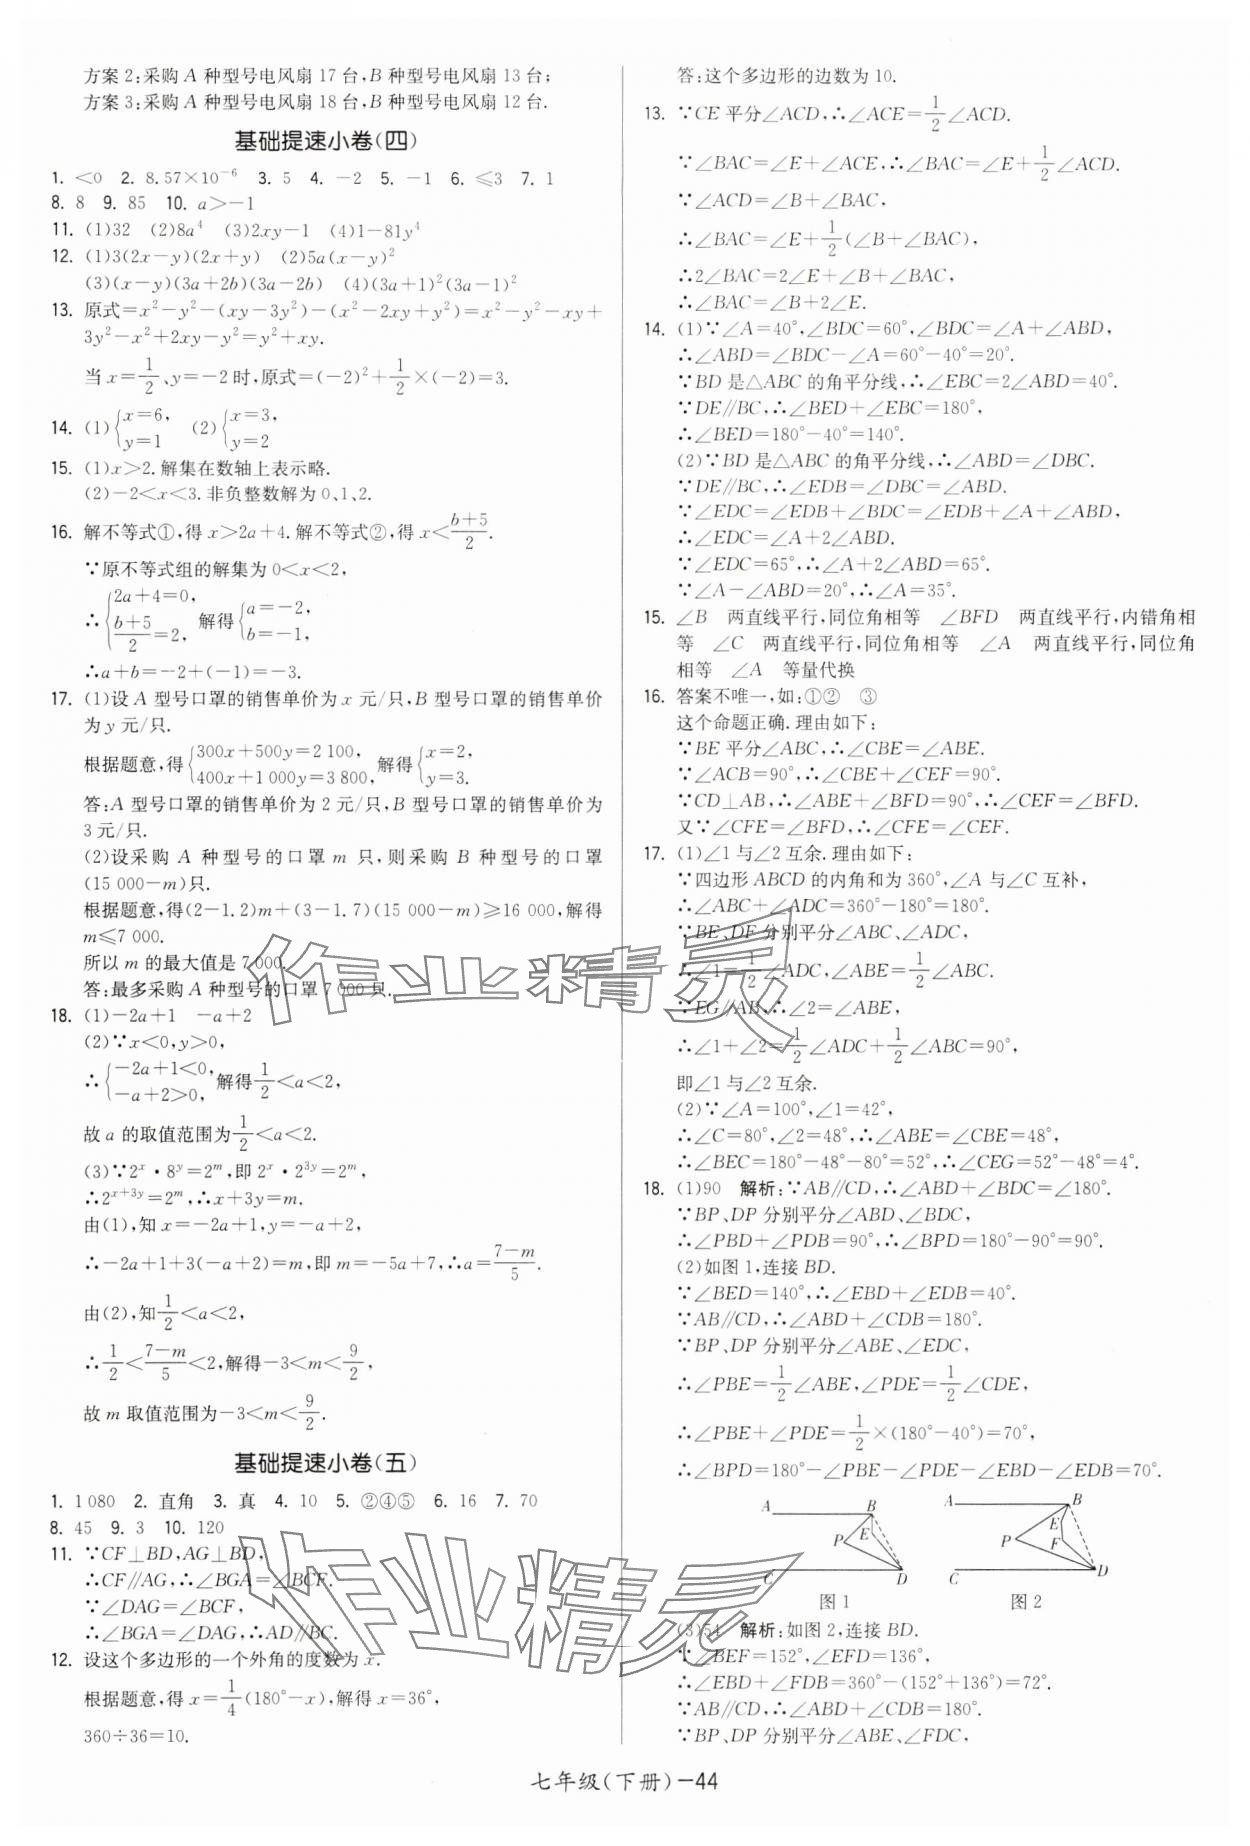 方案 2:采购 A 种型号电风扇 17 台,B 种型号电风扇 13 台;
方案 3:采购 A 种型号电风扇 18 台,B 种型号电风扇 12 台.
基础提速小卷(四)
1. <0 2. 8.57×10⁻⁶ 3. 5 4. −2 5. −1 6. ≤3 7. 1
8. 8 9. 85 10. a>−1
11. (1)32 (2)8a⁴ (3)2xy−1 (4)1−81y⁴
12. (1)3(2x−y)(2x+y) (2)5a(x−y)²
(3)(x−y)(3a+2b)(3a−2b) (4)(3a+1)²(3a−1)²
13. 原式=x²−y²−(xy−3y²)−(x²−2xy+y²)=x²−y²−xy+
3y²−x²+2xy−y²=y²+xy.
当 x=1/2、y=−2 时,原式=(−2)²+1/2×(−2)=3.
14. (1){x=6, y=1 (2){x=3, y=2
15. (1)x>2. 解集在数轴上表示略.
(2)−2<x<3. 非负整数解为 0、1、2.
16. 解不等式①,得 x>2a+4. 解不等式②,得 x<(b+5)/2.
∵原不等式组的解集为 0<x<2,
∴{2a+4=0, (b+5)/2=2, 解得{a=−2, b=−1,
∴a+b=−2+(−1)=−3.
17. (1)设 A 型号口罩的销售单价为 x 元/只,B 型号口罩的销售单价
为 y 元/只.
根据题意,得{300x+500y=2 100, 400x+1 000y=3 800, 解得{x=2, y=3.
答:A 型号口罩的销售单价为 2 元/只,B 型号口罩的销售单价为
3 元/只.
(2)设采购 A 种型号的口罩 m 只,则采购 B 种型号的口罩
(15 000−m)只.
根据题意,得(2−1.2)m+(3−1.7)(15 000−m)≥16 000,解得
m≤7 000.
所以 m 的最大值是 7 000.
答:最多采购 A 种型号的口罩 7 000 只.
18. (1)−2a+1 −a+2
(2)∵x<0,y>0,
∴{−2a+1<0, −a+2>0, 解得1/2<a<2,
故 a 的取值范围为1/2<a<2.
(3)∵2ˣ·8ʸ=2ᵐ,即 2ˣ·2³ʸ=2ᵐ,
∴2ˣ⁺³ʸ=2ᵐ,∴x+3y=m.
由(1),知 x=−2a+1,y=−a+2,
∴−2a+1+3(−a+2)=m,即 m=−5a+7,∴a=(7−m)/5.
由(2),知1/2<a<2,
∴1/2<(7−m)/5<2,解得−3<m<9/2,
故 m 取值范围为−3<m<9/2.
基础提速小卷(五)
1. 1 080 2. 直角 3. 真 4. 10 5. ②④⑤ 6. 16 7. 70
8. 45 9. 3 10. 120
11. ∵CF⊥BD,AG⊥BD,
∴CF∥AG,∴∠BGA=∠BCF.
∵∠DAG=∠BCF,
∴∠BGA=∠DAG,∴AD∥BC.
12. 设这个多边形的一个外角的度数为 x.
根据题意,得 x=1/4(180°−x),解得 x=36°,
360÷36=10.
答:这个多边形的边数为 10.
13. ∵CE 平分∠ACD,∴∠ACE=1/2∠ACD.
∵∠BAC=∠E+∠ACE,∴∠BAC=∠E+1/2∠ACD.
∵∠ACD=∠B+∠BAC,
∴∠BAC=∠E+1/2(∠B+∠BAC),
∴2∠BAC=2∠E+∠B+∠BAC,
∴∠BAC=∠B+2∠E.
14. (1)∵∠A=40°,∠BDC=60°,∠BDC=∠A+∠ABD,
∴∠ABD=∠BDC−∠A=60°−40°=20°.
∵BD 是△ABC 的角平分线,∴∠EBC=2∠ABD=40°.
∵DE∥BC,∴∠BED+∠EBC=180°,
∴∠BED=180°−40°=140°.
(2)∵BD 是△ABC 的角平分线,∴∠ABD=∠DBC.
∵DE∥BC,∴∠EDB=∠DBC=∠ABD.
∵∠EDC=∠EDB+∠BDC=∠EDB+∠A+∠ABD,
∴∠EDC=∠A+2∠ABD.
∵∠EDC=65°,∴∠A+2∠ABD=65°.
∵∠A−∠ABD=20°,∴∠A=35°.
15. ∠B 两直线平行,同位角相等 ∠BFD 两直线平行,内错角相
等 ∠C 两直线平行,同位角相等 ∠A 两直线平行,同位角
相等 ∠A 等量代换
16. 答案不唯一,如:①② ③
这个命题正确.理由如下:
∵BE 平分∠ABC,∴∠CBE=∠ABE.
∵∠ACB=90°,∴∠CBE+∠CEF=90°.
∵CD⊥AB,∴∠ABE+∠BFD=90°,∴∠CEF=∠BFD.
又∵∠CFE=∠BFD,∴∠CFE=∠CEF.
17. (1)∠1 与∠2 互余.理由如下:
∵四边形 ABCD 的内角和为 360°,∠A 与∠C 互补,
∴∠ABC+∠ADC=360°−180°=180°.
∵BE、DF 分别平分∠ABC、∠ADC,
∴∠1=1/2∠ADC,∠ABE=1/2∠ABC.
∵EG∥AB,∴∠2=∠ABE,
∴∠1+∠2=1/2∠ADC+1/2∠ABC=90°,
即∠1 与∠2 互余.
(2)∵∠A=100°,∠1=42°,
∴∠C=80°,∠2=48°,∴∠ABE=∠CBE=48°,
∴∠BEC=180°−48°−80°=52°,∴∠CEG=52°−48°=4°.
18. (1)90 解析:∵AB∥CD,∴∠ABD+∠BDC=∠180°.
∵BP、DP 分别平分∠ABD、∠BDC,
∴∠PBD+∠PDB=90°,∴∠BPD=180°−90°=90°.
(2)如图 1,连接 BD.
∵∠BED=140°,∴∠EBD+∠EDB=40°.
∵AB∥CD,∴∠ABD+∠CDB=180°.
∵BP、DP 分别平分∠ABE、∠EDC,
∴∠PBE=1/2∠ABE,∠PDE=1/2∠CDE,
∴∠PBE+∠PDE=1/2×(180°−40°)=70°,
∴∠BPD=180°−∠PBE−∠PDE−∠EBD−∠EDB=70°.
A B P E C D
图 1
A B E P F C D
图 2
(3)54 解析:如图 2,连接 BD.
∵∠BEF=152°,∠EFD=136°,
∴∠EBD+∠FDB=360°−(152°+136°)=72°.
∵AB∥CD,∴∠ABD+∠CDB=180°.
∵BP、DP 分别平分∠ABE、∠FDC,
七年级(下册)−44
作业精灵
作业精灵